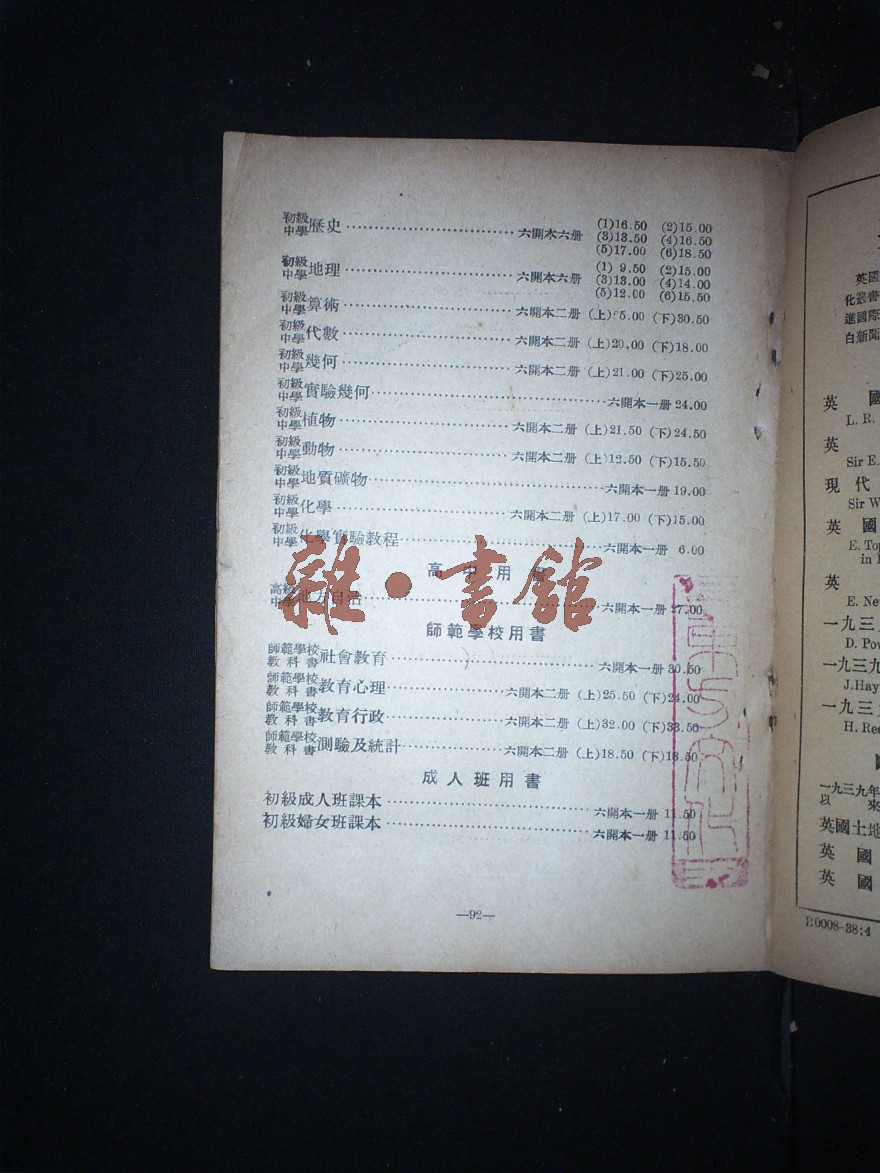 初級中學歷史……六開本六册 (1)16.50 (2)15.00
(3)13.50 (4)16.50
(5)17.00 (6)18.50
初級中學地理……六開本六册 (1) 9.50 (2)15.00
(3)13.00 (4)14.00
(5)12.00 (6)15.50
初級中學算術……六開本二册 (上) 5.00 (下)30.50
初級中學代數……六開本二册 (上)20.00 (下)18.00
初級中學幾何……六開本二册 (上)21.00 (下)25.00
初級中學實驗幾何……六開本一册 24.00
初級中學植物……六開本二册 (上)21.50 (下)24.50
初級中學動物……六開本二册 (上)12.50 (下)15.50
初級中學地質礦物……六開本一册 19.00
初級中學化學……六開本二册 (上)17.00 (下)15.00
初級中學化學實驗教程……六開本一册 6.00
高中用書
高級中學地方自治……六開本一册 27.00
師範學校用書
師範學校教科書社會教育……六開本一册 30.50
師範學校教科書教育心理……六開本二册 (上)25.50 (下)24.00
師範學校教科書教育行政……六開本二册 (上)32.00 (下)33.50
師範學校教科書測驗及統計……六開本二册 (上)18.50 (下)18.50
成人班用書
初級成人班課本……六開本一册 11.50
初級婦女班課本……六開本一册 11.50
—92—
雜·書館
英國
化叢書
進國際
白新聞
英 國
L. R.
英
Sir E.
現 代
Sir W
英 國
E. Top
in
英
E. Ne
一九三
D. Pow
一九三九
J.Hay
一九三
H. Ree
一九三九年
以 來
英國土地
英 國
英 國
B0008-38:4